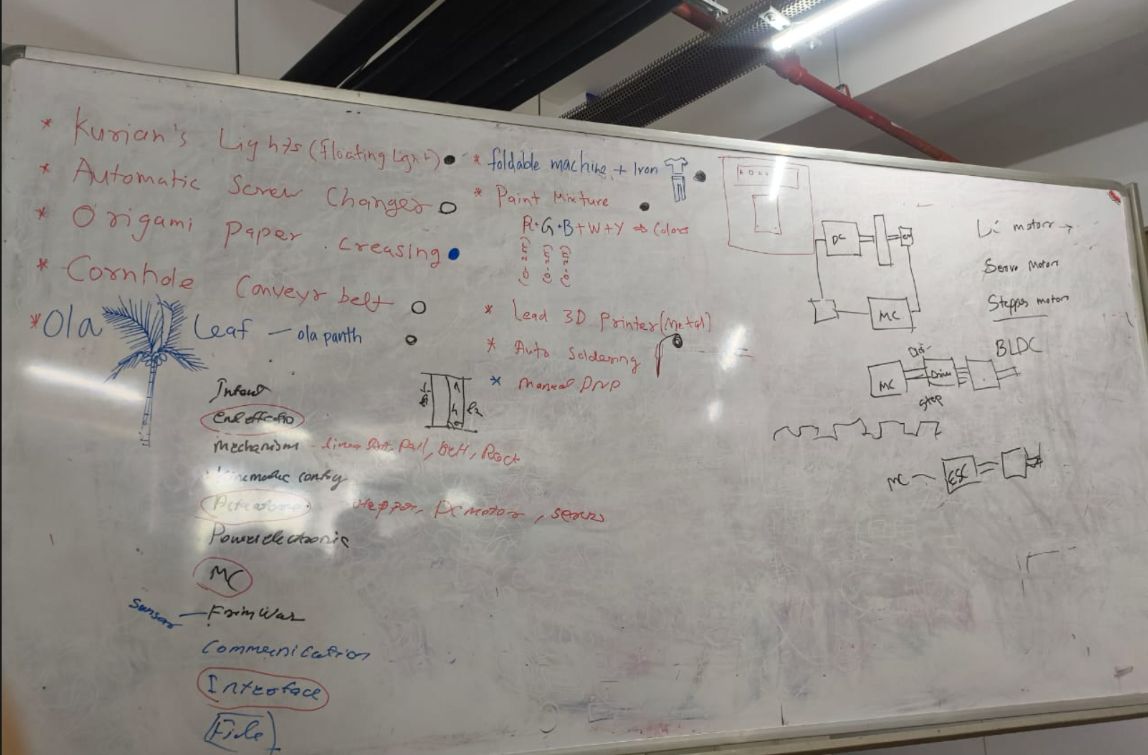 * Kurian's Lights (floating Light)
* Automatic Screw Changer
* Origami Paper Creasing
* Cornhole Conveyr belt
* Ola Leaf - ola panth
* foldable machine + Iron
* Paint Mixture
R·G·B+W+Y => Colors
* Lead 3D Printer (Metal)
* Auto Soldering
* Manual PNP
Mechanism
Belt, Rack
config
Actuators Stepper, DC motor, servos
Power electronic
MC
Sensor
Communication
Interface
File
DC
MC
motors →
Servo Motors
Stepper motors
BLDC
MC
Driver
Step
MC
ESC